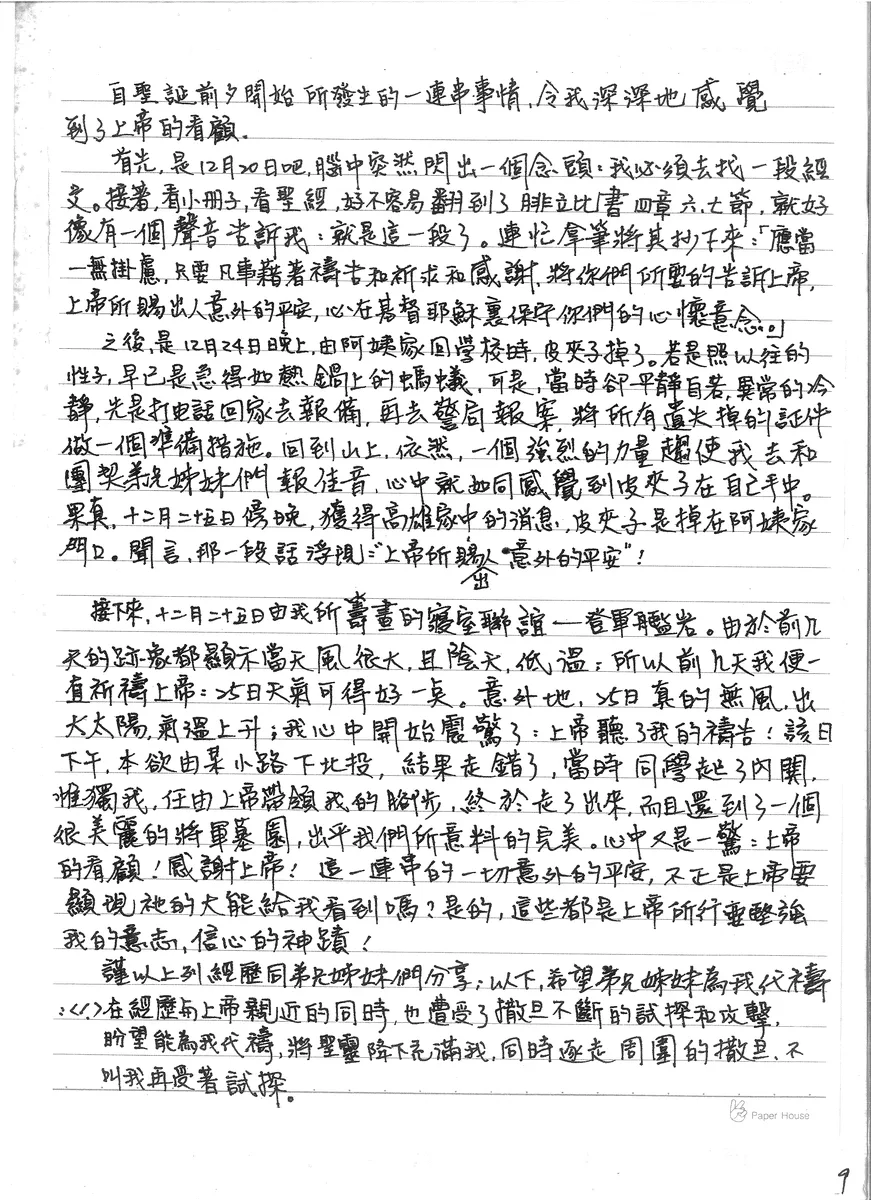 自聖誕前夕開始所發生的一連串事情,令我深深地感覺
到了上帝的看顧.
首先,是12月20日吧,腦中突然閃出一個念頭:我必須去找一段經
文。接著,看小冊子,看聖經,好不容易翻到了腓立比書四章六.七節,就好
像有一個聲音告訴我:就是這一段了。連忙拿筆將其抄下來:「應當
一無掛慮,只要凡事藉著禱告和祈求和感謝,將你們所要的告訴上帝,
上帝所賜出人意外的平安,必在基督耶穌裏保守你們的心懷意念。」
之後,是12月24日晚上,由阿姨家回學校時,皮夾子掉了。若是照以往的
性子,早已是急得如熱鍋上的螞蟻,可是,當時卻平靜自若,異常的冷
靜,先是打电話回家去報備,再去警局報案,將所有遺失掉的証件
做一個準備措施。回到山上,依然,一個強烈的力量趨使我去和
團契弟兄姊妹們報佳音,心中就如同感覺到皮夾子在自己手中。
果真,十二月二十五日傍晚,獲得高雄家中的消息,皮夾子是掉在阿姨家
門口。聞言,那一段話浮現:"上帝所賜出人意外的平安"!
接下來,十二月二十五日由我所籌畫的寢室聯誼—登軍艦岩。由於前几
天的跡象都顯示當天風很大,且陰天,低溫;所以前几天我便一
直祈禱上帝:25日天氣可得好一点。意外地,25日真的無風,出
大太陽,氣溫上升;我心中開始震驚了:上帝聽了我的禱告!該日
下午,本欲由某小路下北投,結果走錯了,當時同學起了內鬨,
惟獨我,任由上帝帶領我的腳步,終於走了出來,而且還到了一個
很美麗的將軍墓園,出乎我們所意料的完美。心中又是一驚:上帝
的看顧!感謝上帝!這一連串的一切意外的平安,不正是上帝要
顯現祂的大能給我看到嗎?是的,這些都是上帝所行要堅強
我的意志,信心的神蹟!
謹以上列經歷同弟兄姊妹們分享;以下,希望弟兄姊妹為我代禱
:<1.>在經歷与上帝親近的同時,也遭受了撒旦不斷的試探和攻擊,
盼望能為我代禱,將聖靈降下充滿我,同時逐走周圍的撒旦,不
叫我再受著試探。
Paper House
9